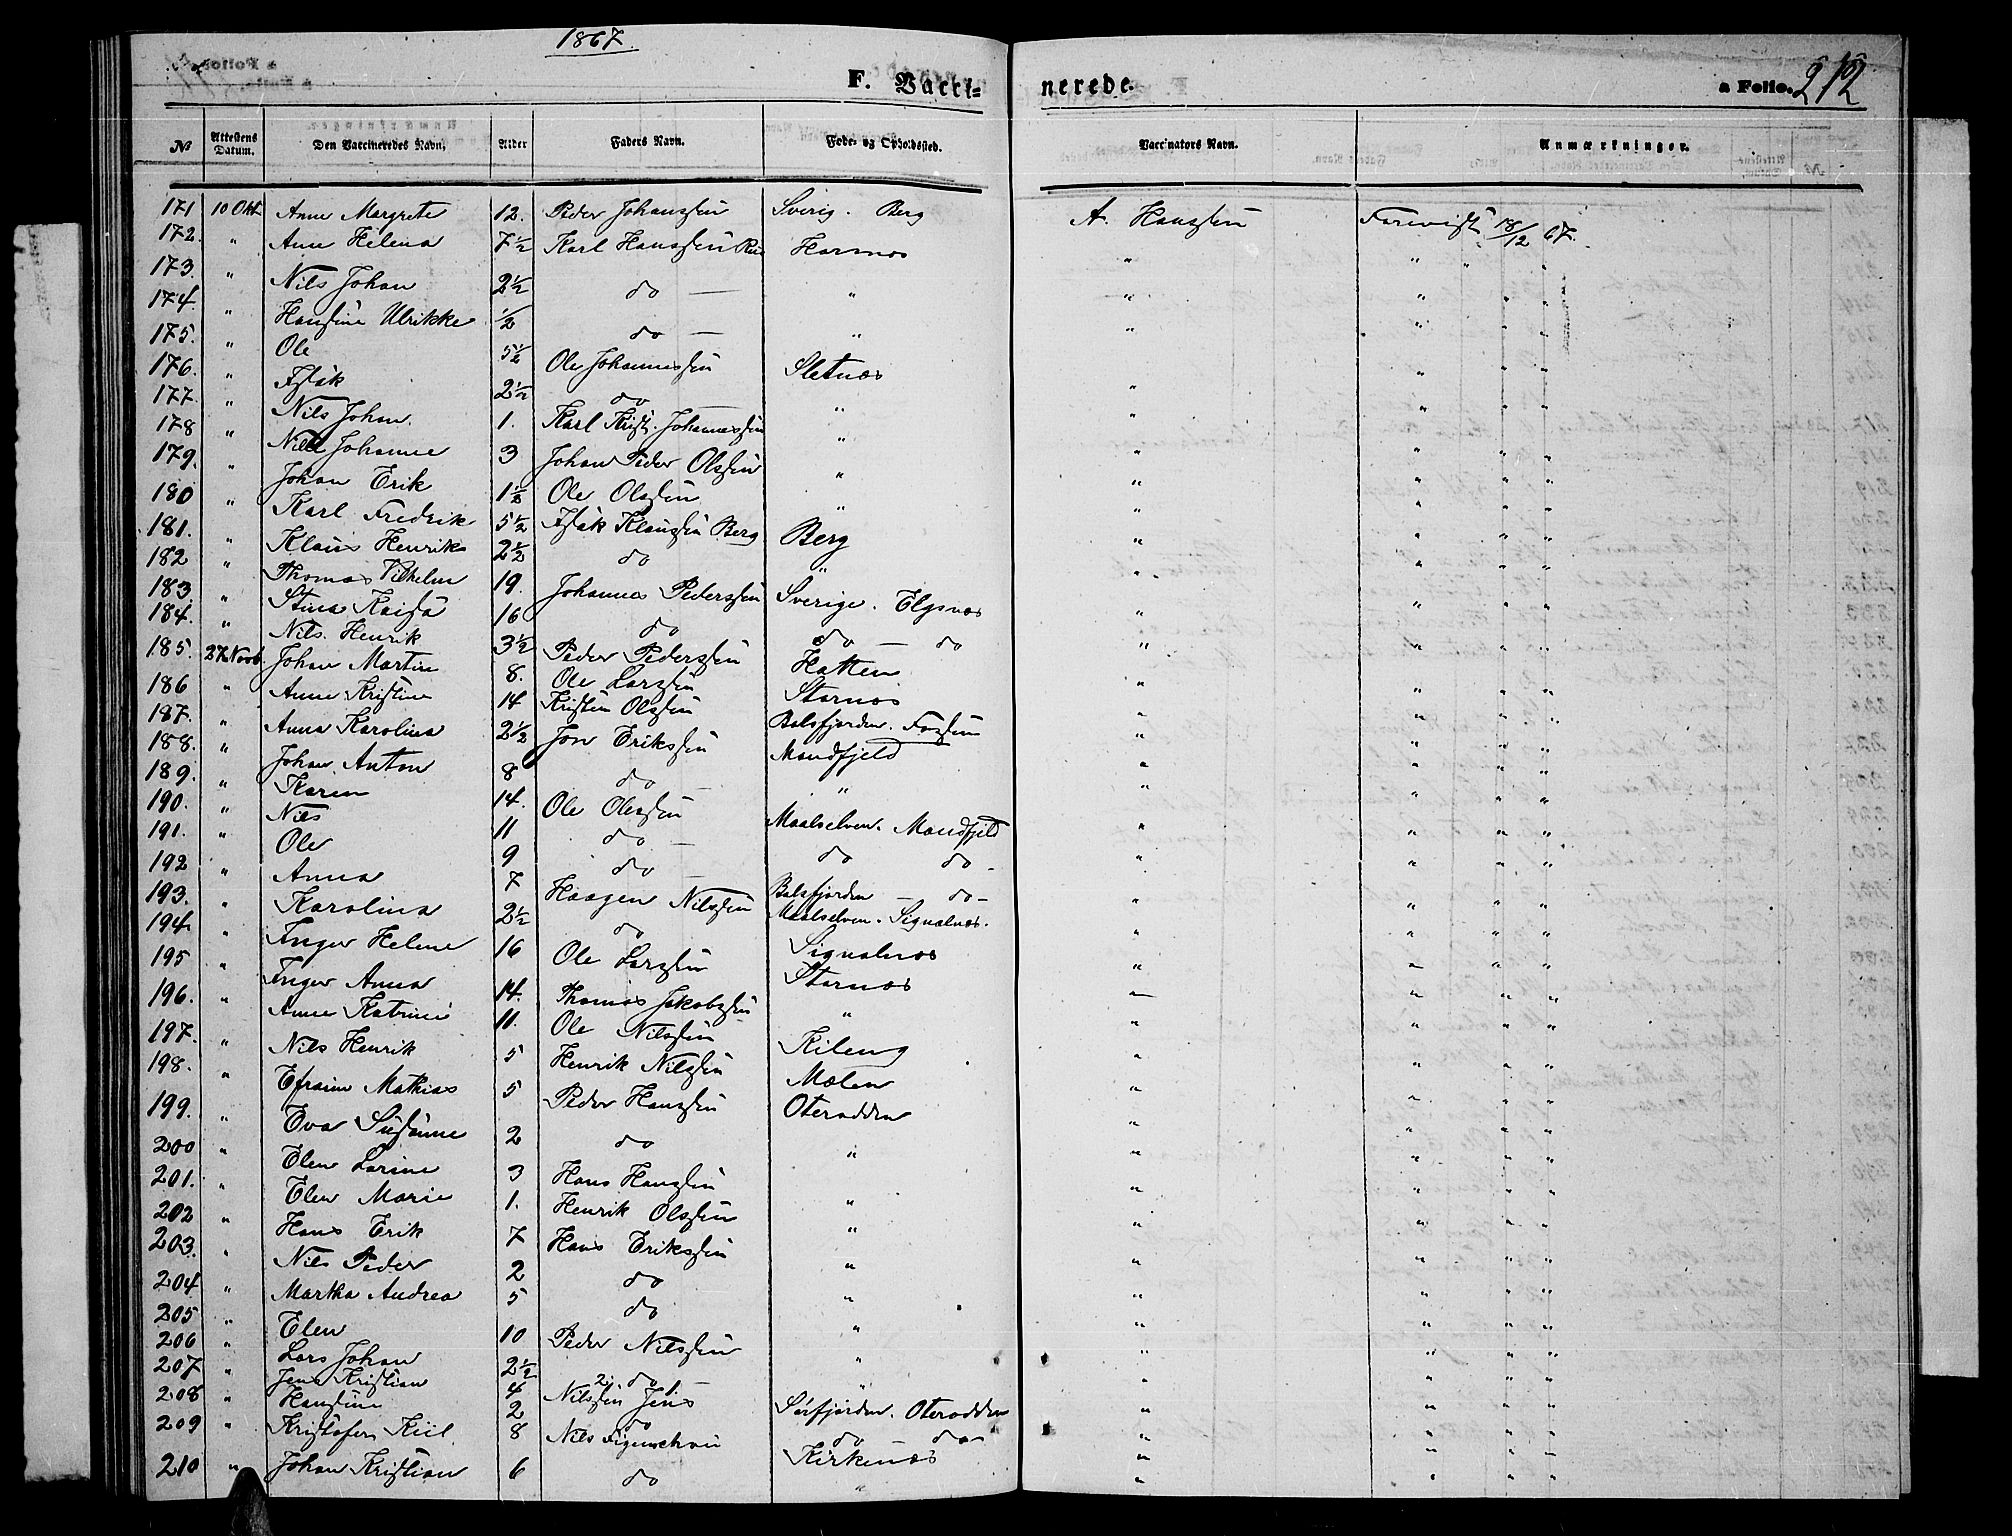 1867.
F. Vacci-
nerede.
a Folio. 212
No Attestens Datum. Den Vaccineredes Navn, Alder Faders Navn. Føde- og Opholdssted. Vaccinators Navn. Anmærkninger.
171 10 Okt Anne Margrete 12. Peder Johanssen Sverig. Berg A. Hanssen Forevist 18/12 67.
172. " Ane Helena 7½ Karl Hanssen Hornnes " " " "
173. " Nils Johan 2½ do — " " " " "
174. " Hansine Ulrikke ½ do — " " " " "
175. " Ole 5½ Ole Johannessen Sletnæs " " " "
176. " Isak 2½ do " " " " "
177. " Nils Johan. 1. Karl Krist. Johannessen " " " " "
178 " Nille Johanne 3 Johan Peder Olssen " " " " "
179. " Johan Erik 1½ Ole Olssen " " " " "
180 " Karl Fredrik 5½ Isak Klaussen Berg Berg " " " "
181. " Klaus Henrik 2½ do " " " " "
182 " Thomas Vilhelm 19. Johannes Pederssen Sverige. Elgsnæs " " " "
183. " Stina Kaisa 16 do do — do " " " "
184. " Nils. Henrik 3½ Peder Pederssen Hatten " " " "
185. 27 Novb Johan Martin 8. Ole Larssen Stornæs " " " "
186 " Anne Kristine 14 Kristen Olssen Balsfjorden. " " " "
187. " Anna Karolina 2½ Jon Erikssen Mandfjeld " " " "
188. " Johan Anton 8 do — " " " " "
189. " Karen 14. Ole Olessen Maalselven. Mandfjeld " " " "
190. " Nils 11 do — do do - " " " "
191. " Ole 9 do — Balsfjorden — do - " " " "
192 " Anna 7 Haagen Nilssen Maalselven. Signalnæs. " " " "
193. " Karolina 2½ do Signalnæs " " " "
194. " Inger Helene 16 Ole Larssen Stornæs " " " "
195 " Inger Anna 14. Thomas Jakobssen " " " " "
196. " Anne Katrine 11. Ole Nilssen Kileng " " " "
197. " Nils Henrik 5 Henrik Nilssen Mælen " " " "
198. " Efraim Mathias 5 Peder Hanssen Oterodden " " " "
199. " Eva Susanne 2 do " " " " "
200 " Elen Larine 3 Hans Hanssen " " " " "
201. " Elen Marie 1. Henrik Olssen " " " " "
202 " Hans Erik 7 Hans Erikssen " " " " "
203. " Nils Peder 2 do " " " " "
204 " Martha Andrea 5 do " " " " "
205 " Elen 10 Peder Nilssen " " " " "
206 " Lars Johan 2½ do " " " " "
207 " Jens Kristian 4 Nilssen Jens Sørfjorden. Oterodden " " " "
208 " Hansine 2 do do do - " " " "
209 " Kristofer Kiil 8 Nils Figenschau Kirkenæs " " " "
210 " Johan Kristian 6 do " " " " "